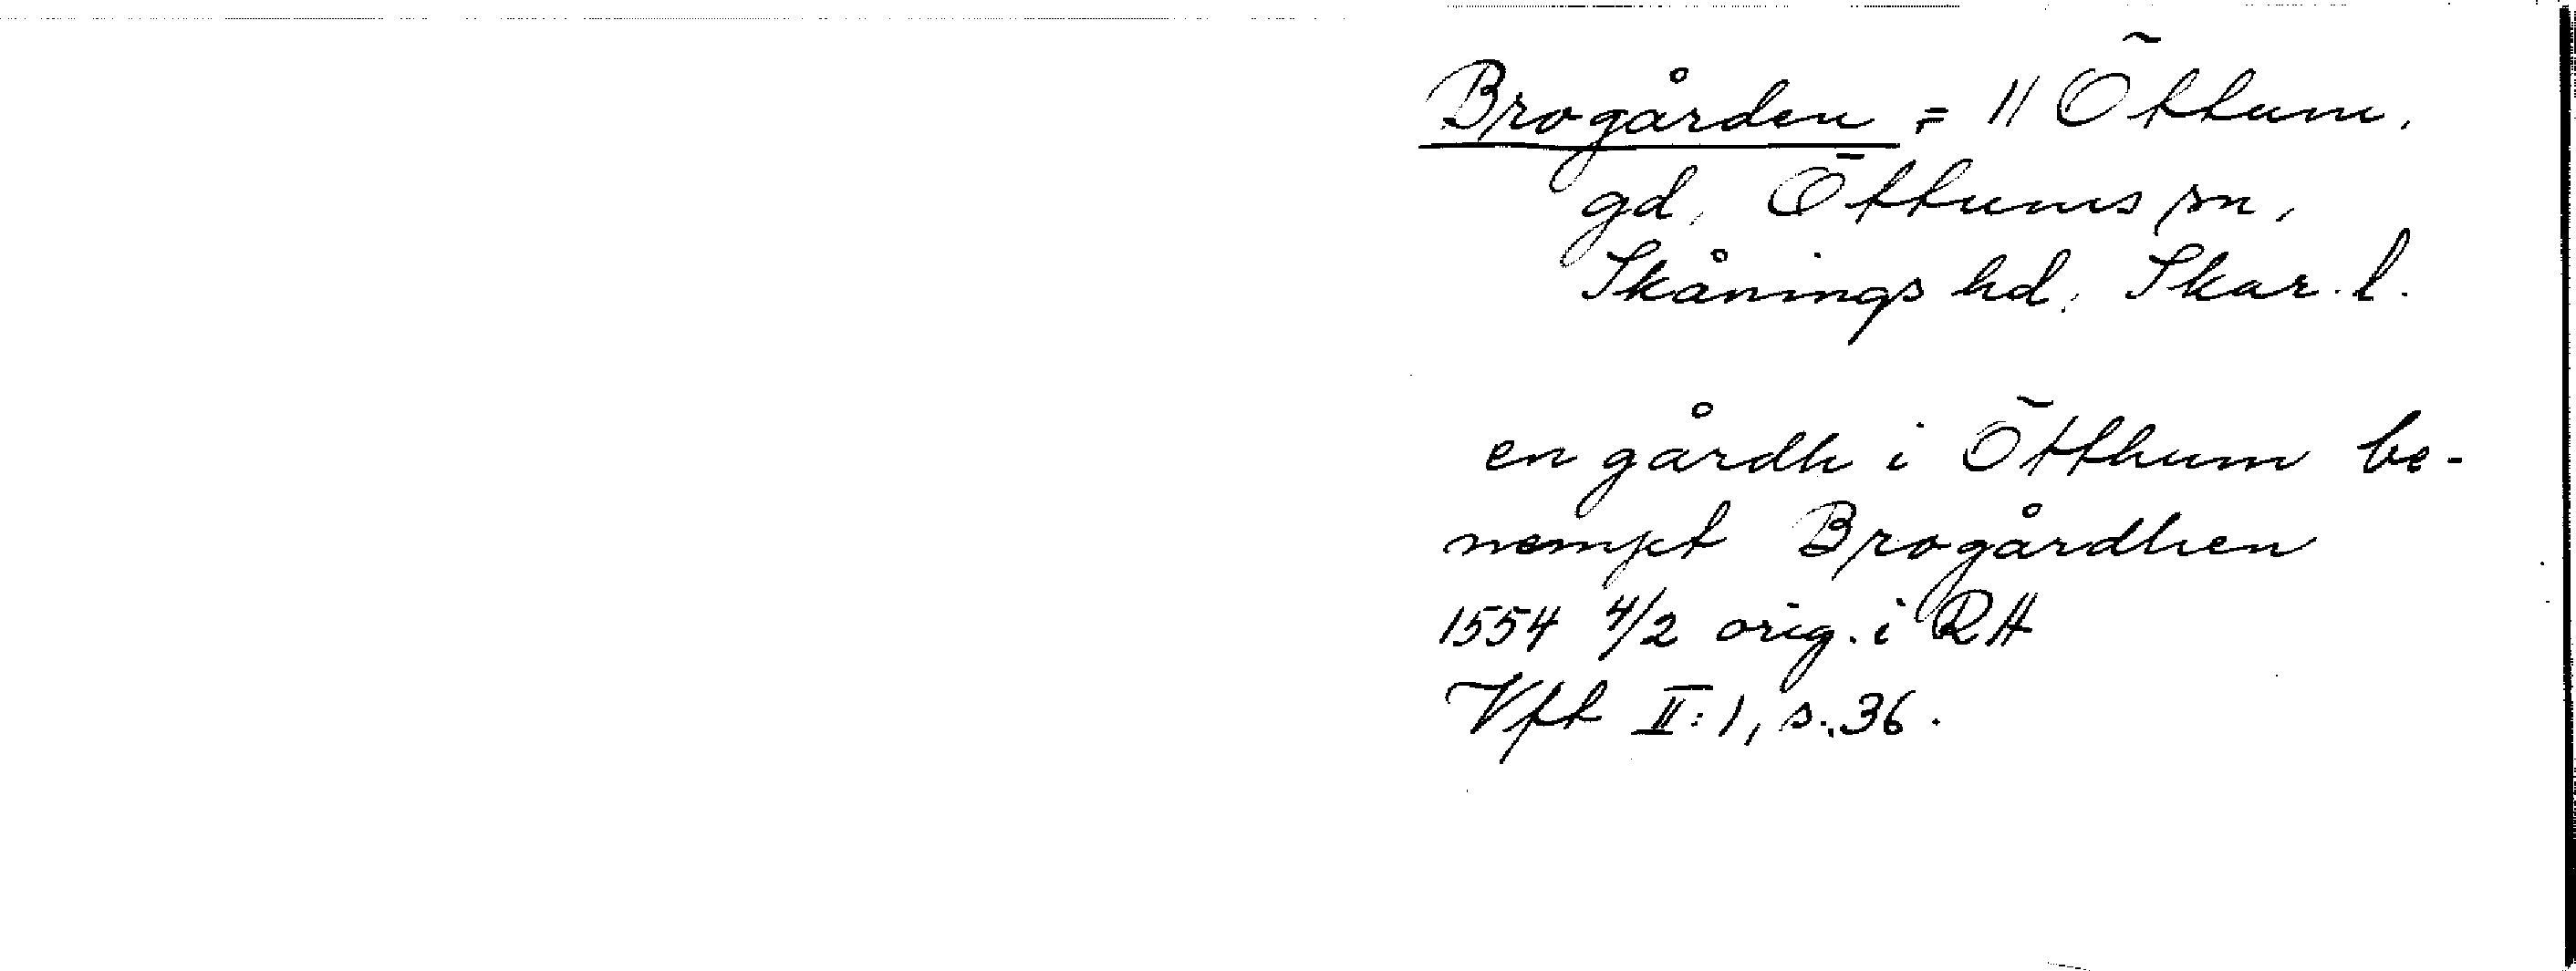 Brogården = 11 Öttum,
gd, Öttums sn,
Skånings hd, Skar. l.
en gårdh i Ötthum be-
nempt Brogårdhen
1554 4/2 orig. i RA
Vft II:1, s. 36.